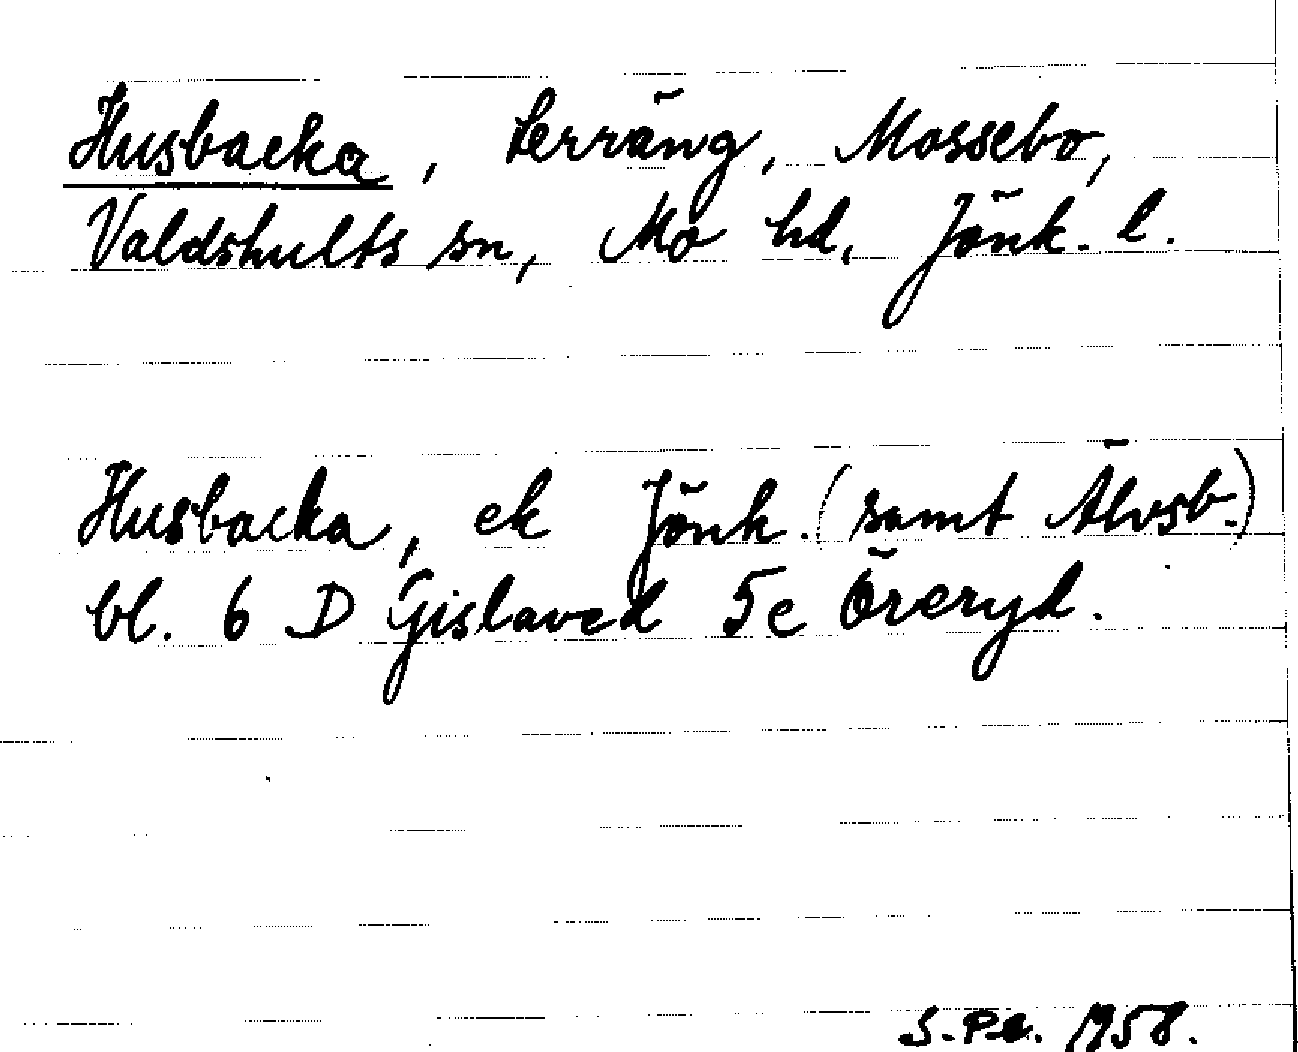 Husbacka, terräng, Mossebo,
Valdshults sn, Mo hd, Jönk. l.
Husbacka, ek Jönk. (samt Älvsb.)
bl. 6 D Gislaved 5e Öreryd.
S. Pe. 1958.